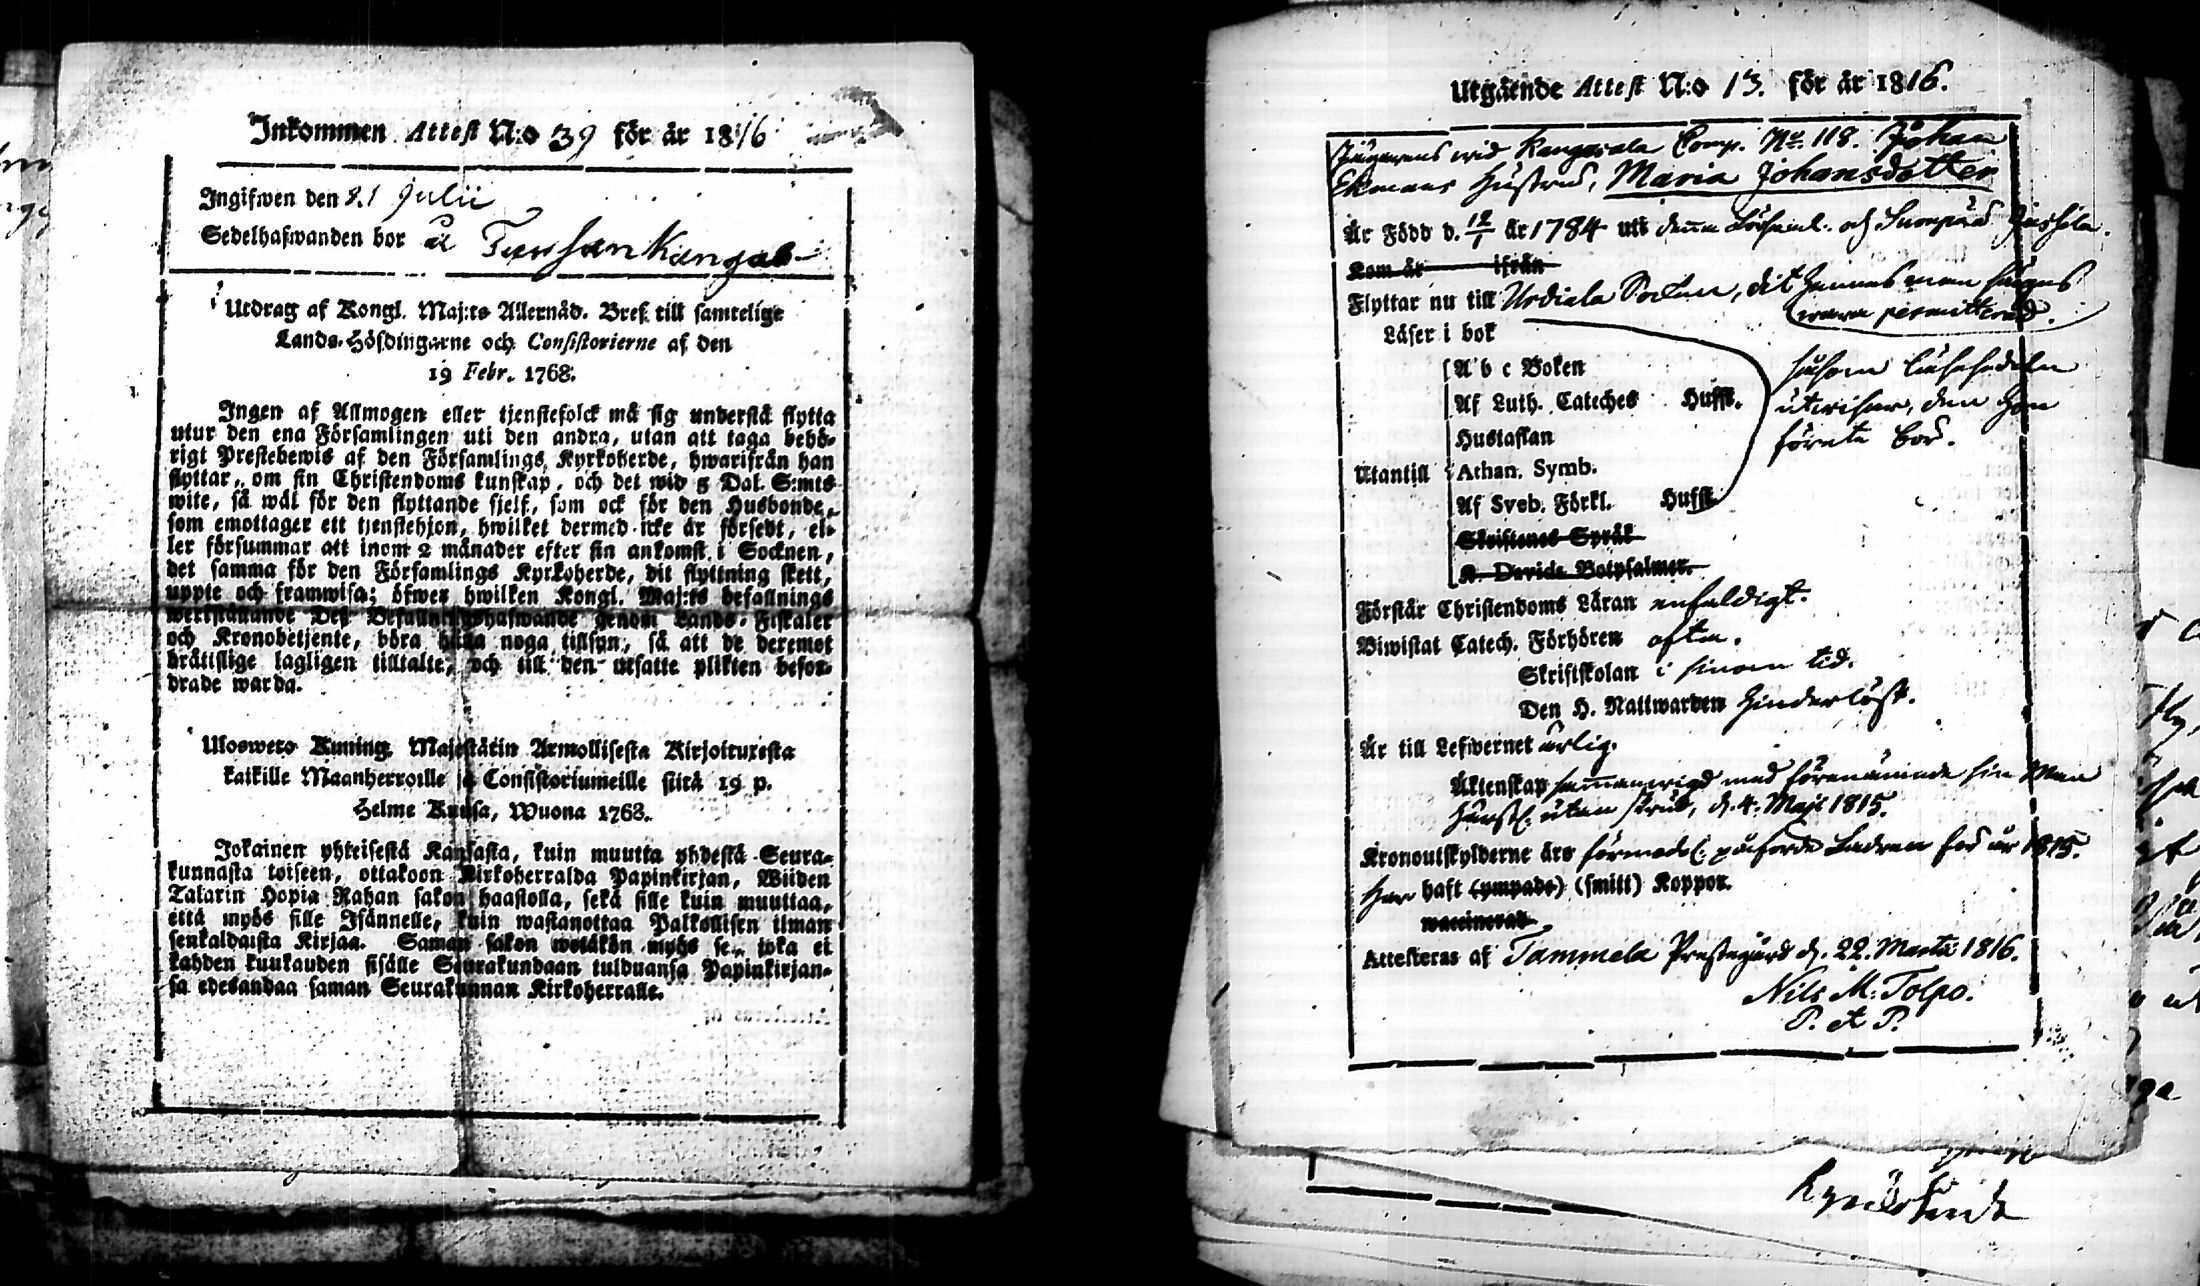 Inkommen Attest N:o 39 för år 1816
Ingifwen den 8.1 Julii
Sedelhafwanden bor å
Utdrag af Kongl. Maj:ts Allernåd. Bref till samtelige
Lands-Höfdingarne och Consistorierne af den
19 Febr. 1768.
Ingen af Allmogen eller tjenstefolck må sig understå flytta
utur den ena Församlingen uti den andra, utan att taga behö-
rigt Prestebewis af den Församlings Kyrkoherde, hwarifrån han
flyttar, om sin Christendoms kunskap, och det wid 5 Dal. S:mts
wite, så wäl för den flyttande sjelf, som ock för den Husbonde,
som emottager ett tjenstehjon, hwilket dermed icke är försedt, el-
ler försummar att inom 2 månader efter sin ankomst i Socknen,
det samma för den Församlings Kyrkoherde, dit flyttning skett,
uppte och framwisa; öfwer hwilken Kongl. Maj:ts befallnings
werkställande Des Befallningshafwande genom Lands-Fiskaler
och Kronobetjente, böra hålla noga tillsyn, så att de deremot
brättslige lagligen tilltalte, och till den utsatte plikten befor-
drade warda.
Uloswets Kuning. Majestätin Armollisesta Kirjoituxesta
kaikille Maanherroille ja Consistoriumeille siitä 19 p.
Helme Kuusa, Wuona 1768.
Jokainen yhteisestä Kansasta, kuin muutta yhdestä Seura-
kunnasta toiseen, ottakoon Kirkoherralda Papinkirjan, Wiiden
Talarin Hopia Rahan sakon haastolla, sekä sille kuin muuttaa,
että myös sille Isännelle, kuin wastanottaa Palkollisen ilman
senkaldaista Kirjaa. Saman sakon wetäkön myös se, joka ei
kahden kuukauden sisälle Seurakundaan tulduansa Papinkirjan-
sa edesandaa saman Seurakunnan Kirkoherralle.
Utgående Attest N:o 13. för år 1816.
Jägarens wid Kangasala Comp. No. 118. Johan
Ekmans Hustru, Maria Johansdotter
Är Född d. 12/1 år 1784 uti denna Församl. och
Kom år ifrån
Flyttar nu till Urdiala Socken, dit hennes man säges
wara permitterad.
Läser i bok
A b c Boken
Af Luth. Cateches Hufft.
Hustaflan
Utantill Athan. Symb.
Af Sveb. Förkl. Hufft.
Skriftenes Språk
K. Davids Botpsalmer.
såsom läsesedeln
utwisar, den hon
företa bör.
Förstår Christendoms Läran enfaldigt.
Biwistat Catech. Förhören ofta.
Skriftskolan i sinom tid.
Den H. Nattwarden hinderlöst.
Är till Lefwernet ärlig.
Äktenskap sammanwigd med förenämnde sin Man
utan d. 4. Maji 1815.
Kronoutskylderne äro för år 1815.
Har haft (ympade) (smitt) Koppor.
waccinerad
Attesteras af Tammela Prestegård d. 22. Martii 1816.
Nils M: Tolpo.
P. et P.